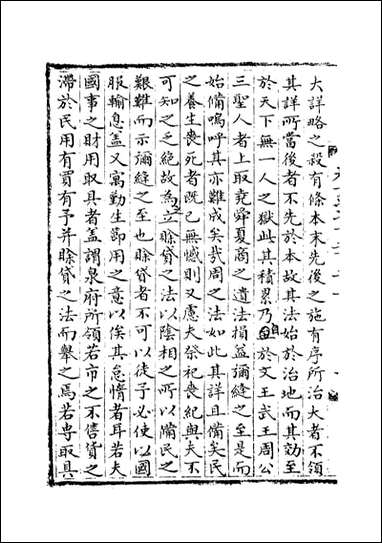 大詳略之殺有條本末先後之施有序所治大者不領
其詳所當後者不先於本故其法始於治地而其効至
於天下無一人之獄此其積累乃自於文王武王周公
三聖人者上取堯舜夏商之遺法損益彌縫之至是而
始備嗚呼其亦難成矣武周之法如此其詳且備矣民
之養生喪死者既已無憾則又慮夫祭祀喪紀與夫不
可知之乏絶故為立賖貸之法以陰相之所以備民之
艱難而示彌縫之至也賖貸者不可以徒予必使以國
服輸息盖又寓勤生節用之意以俟其怠惰者耳若夫
國事之財用取具者盖謂泉府所領若市之不售貨之
滯於民用有買有予并賖貸之法而舉之焉若専取具